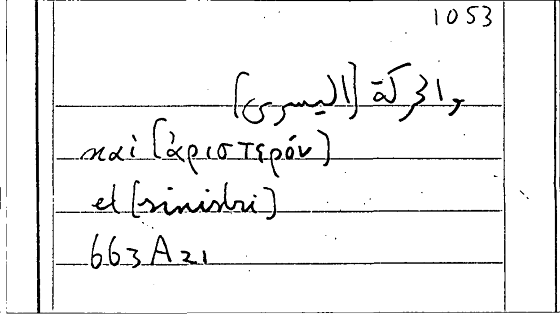 1053
والحركة [اليسرى]
καὶ [ἀριστερόν]
et [sinistri]
663A21